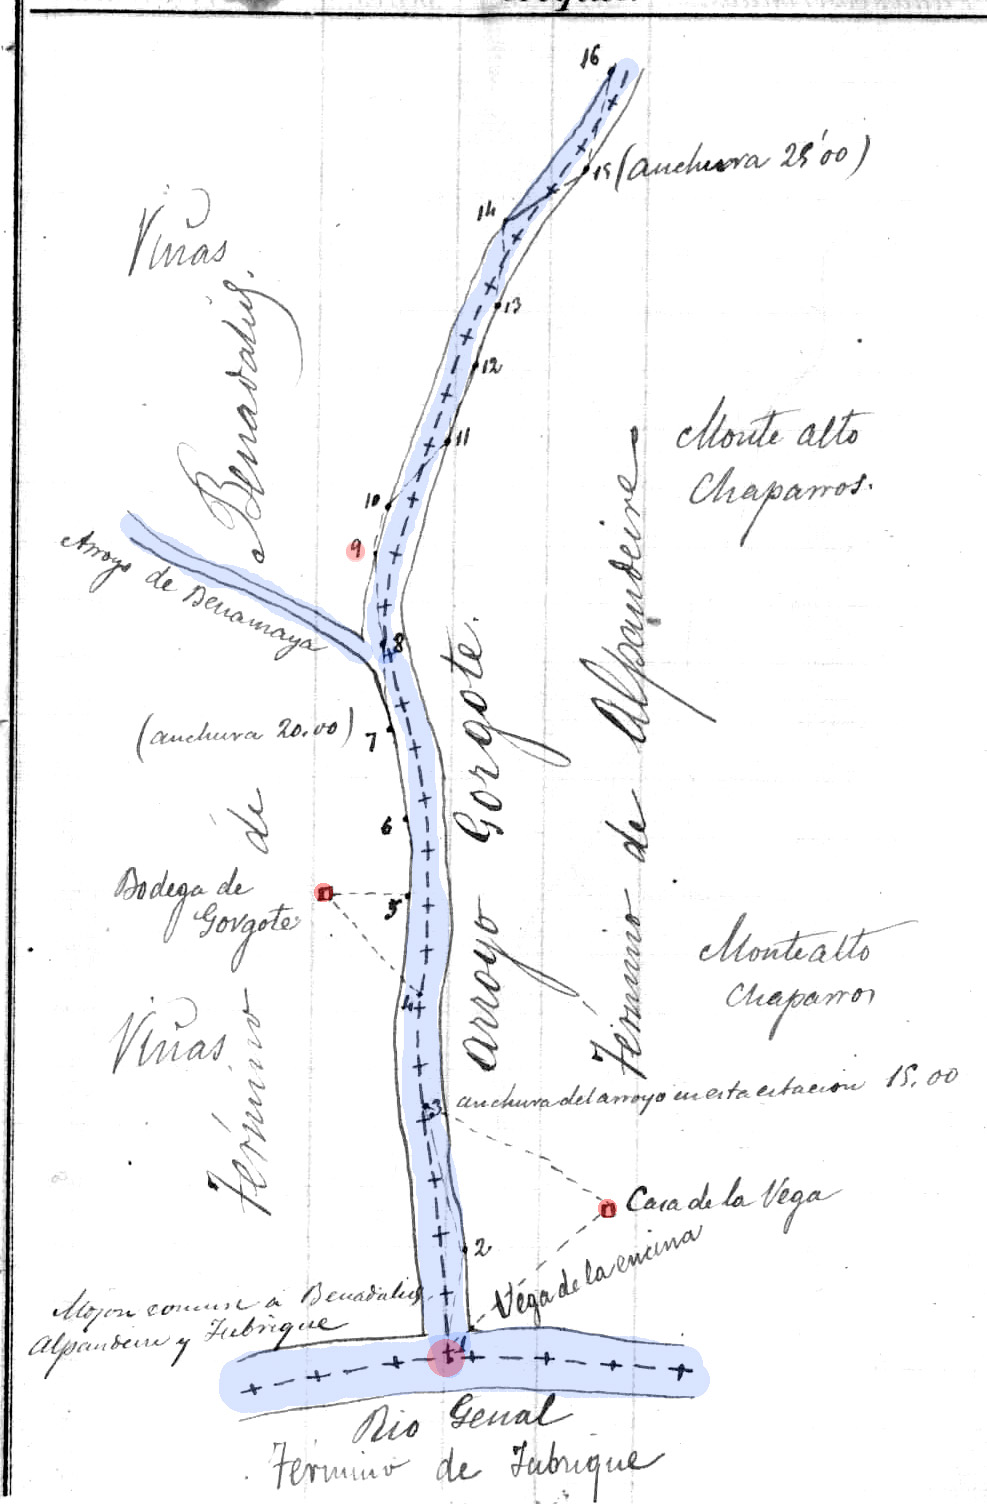 16
15 (anchura 25'00)
14
Viñas
13
12
Monte alto
Chaparros.
11
10
9
Arroyo de Benamaya
8
(anchura 20.00)
7
6
Bodega de
Gorgote
5
4
Término de Benadalid.
Arroyo Gorgote.
Término de Alpandeire
Montealto
Chaparros
Viñas
3
anchura del arroyo en esta estacion 15.00
Casa de la Vega
2
Vega de la encina
Mojon comun a Benadalid,
Alpandeire y Jubrique
1
Rio Genal
Término de Jubrique